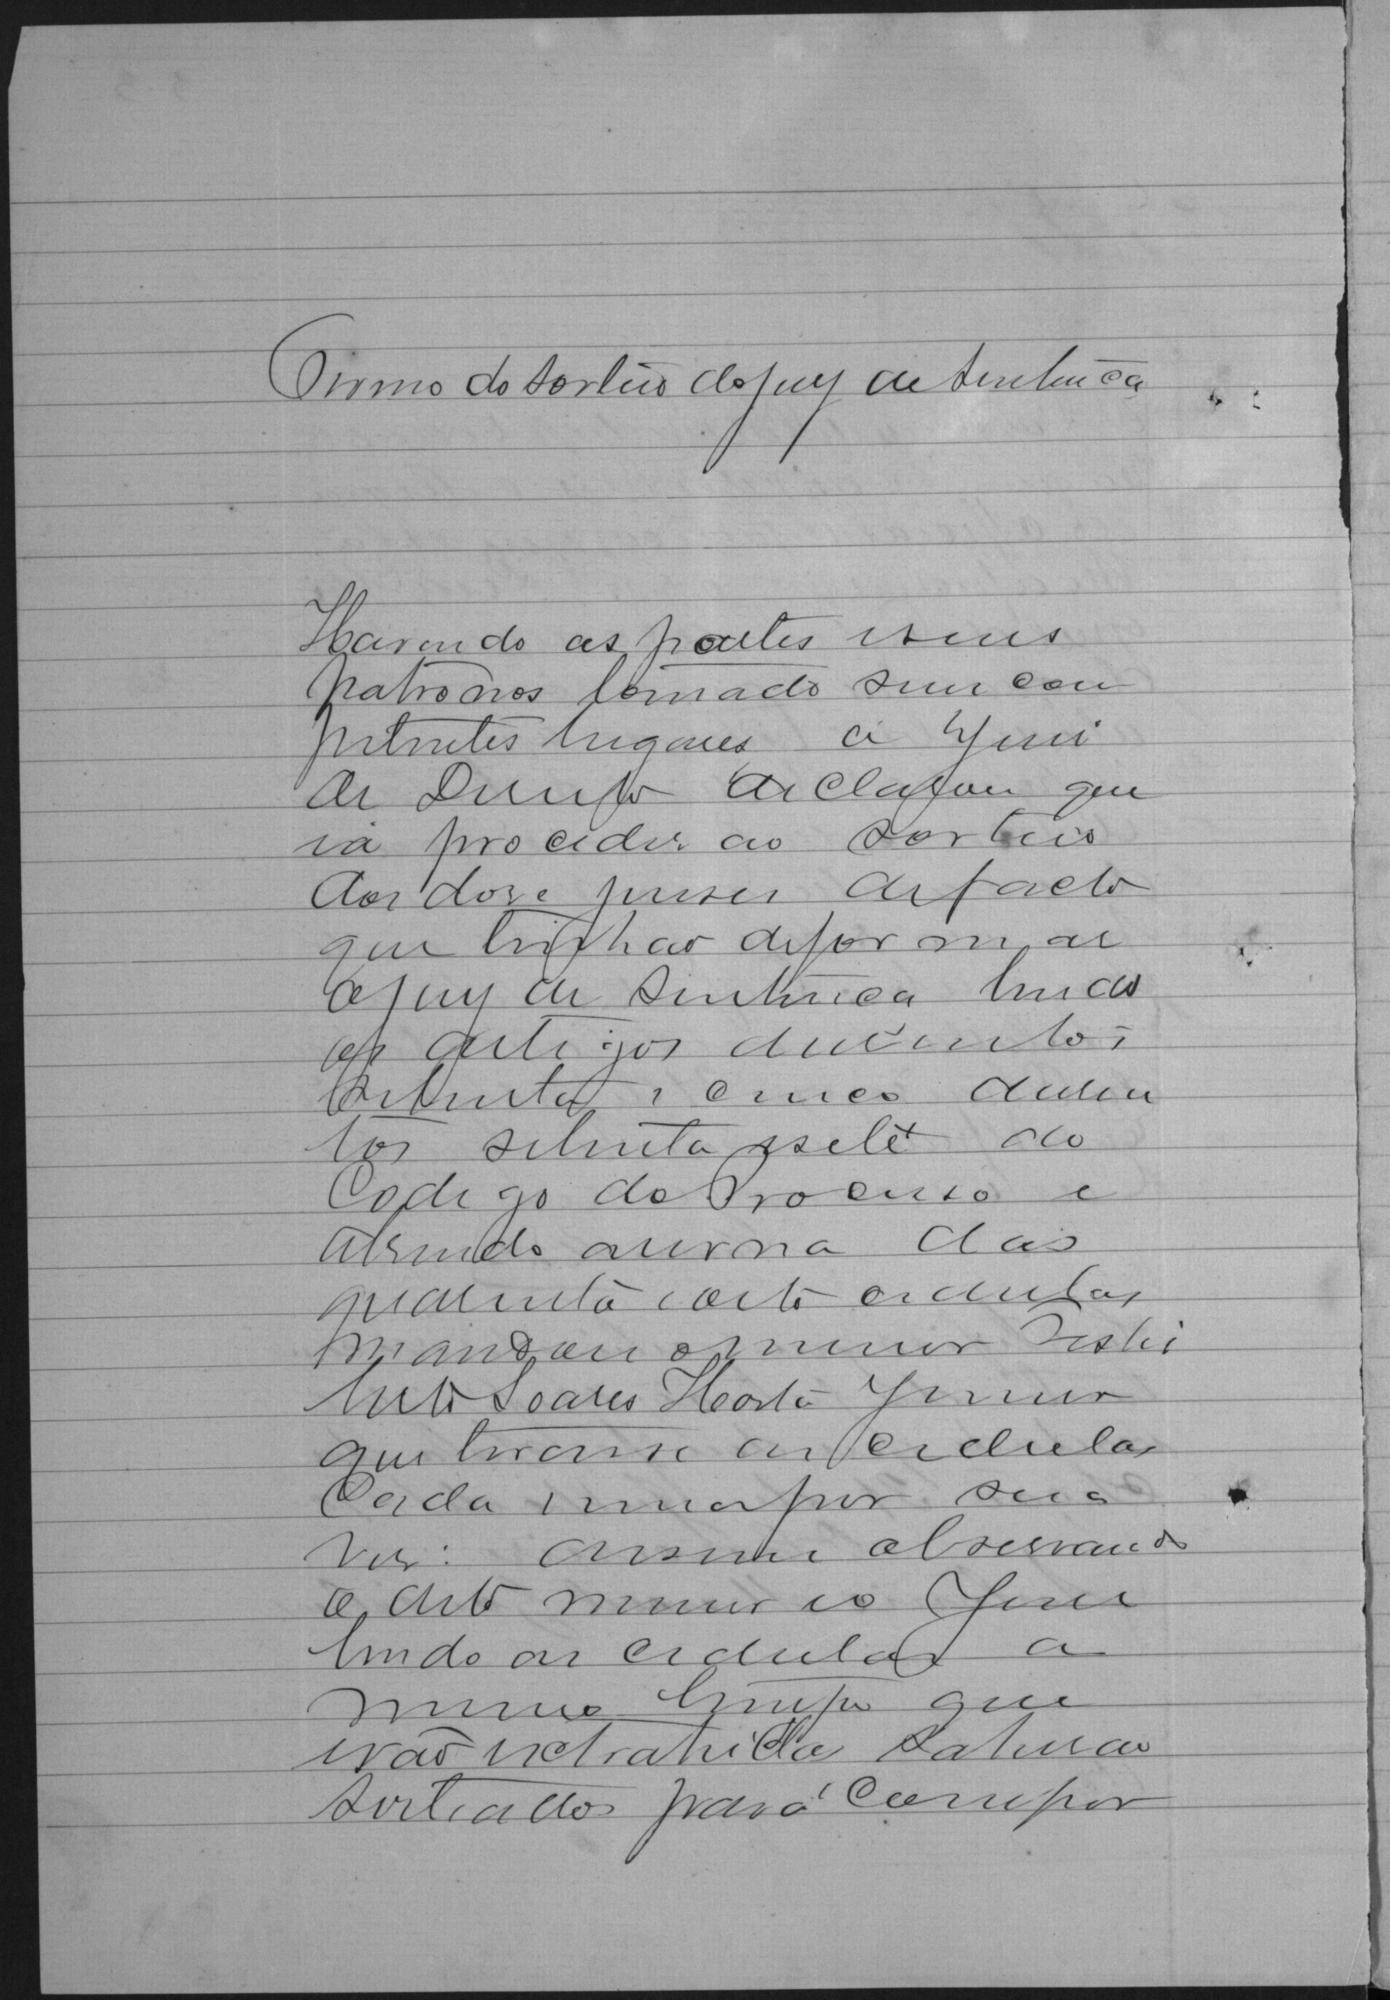 Termo do sorteio do jury de sentença
Havendo as partes e seus
patronos tomado seus com
petentes lugares o Juiz
de Direito declarou que
ia proceder ao sorteio
dos doze juises de facto
que tinhão de formar
o jury de sentença lendo
os artigos duzentos
setenta e cinco duzen
tos setenta e sete do
Codigo do Processo e
abrindo a urna das
quarenta e oito cedulas
mandou o menor
Soares Horta Junior
que tirasse as cedulas
cada uma por sua
vez: assim observando
o dito menor e o Juiz
lendo as cedulas a
mesmo tempo que
erão extrahidas sahirão
sorteados para compor